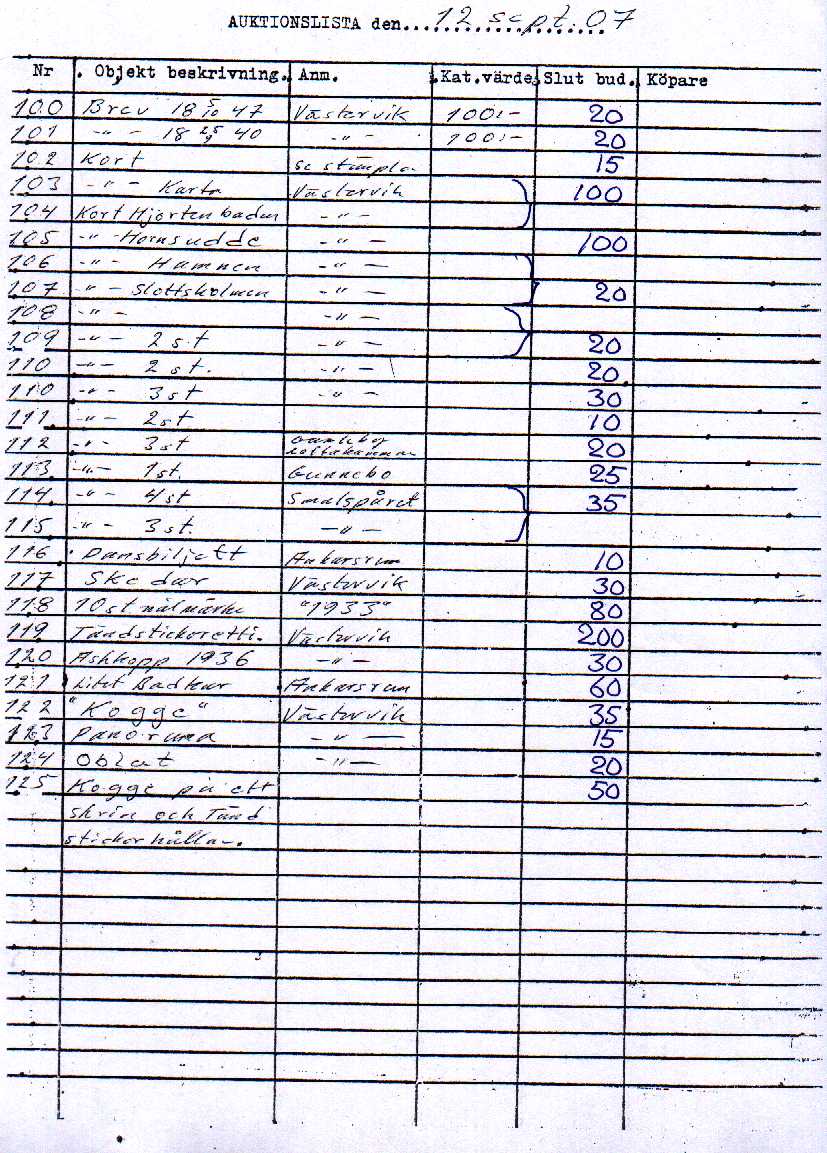 AUKTIONSLISTA den 12 sept. 07
Nr Objekt beskrivning. Anm. Kat.värde Slut bud. Köpare
100 Brev 18 5/10 47 Västervik 100:- 20
101 -"- 18 25/9 40 -"- 100:- 20
102 Kort se stämpla- 15
103 -"- Karta Västervik 100
104 Kort Hjorten badm -"-
105 -"- Hornsudde -"- 100
106 -"- Hamnen -"-
107 -"- Slottsholmen -"- 20
108 -"- -"-
109 -"- 2 st -"- 20
110 -"- 2 st. -"- 20
110 -"- 3 st -"- 30
111. -"- 2 st 10
112 -"- 3 st Gamleby 20
113. -"- 1 st. Gunnebo 25
114. -"- 4 st Smalspåret 35
115. -"- 3 st. -"-
116 Dansbiljett Ankarsrum 10
117 Skedar Västervik 30
118 10 st nålmärke "1933" 80
119 Tändsticksetti. Västervik 200
120 Askkopp 1936 -"- 30
121 Litet Badkar Ankarsrum 60
122 "Kogge" Västervik 35
123 Panorama -"- 15
124 Oblat -"- 20
125 Kogge på ett 50
skrin och Tänd
stickor hålla-.